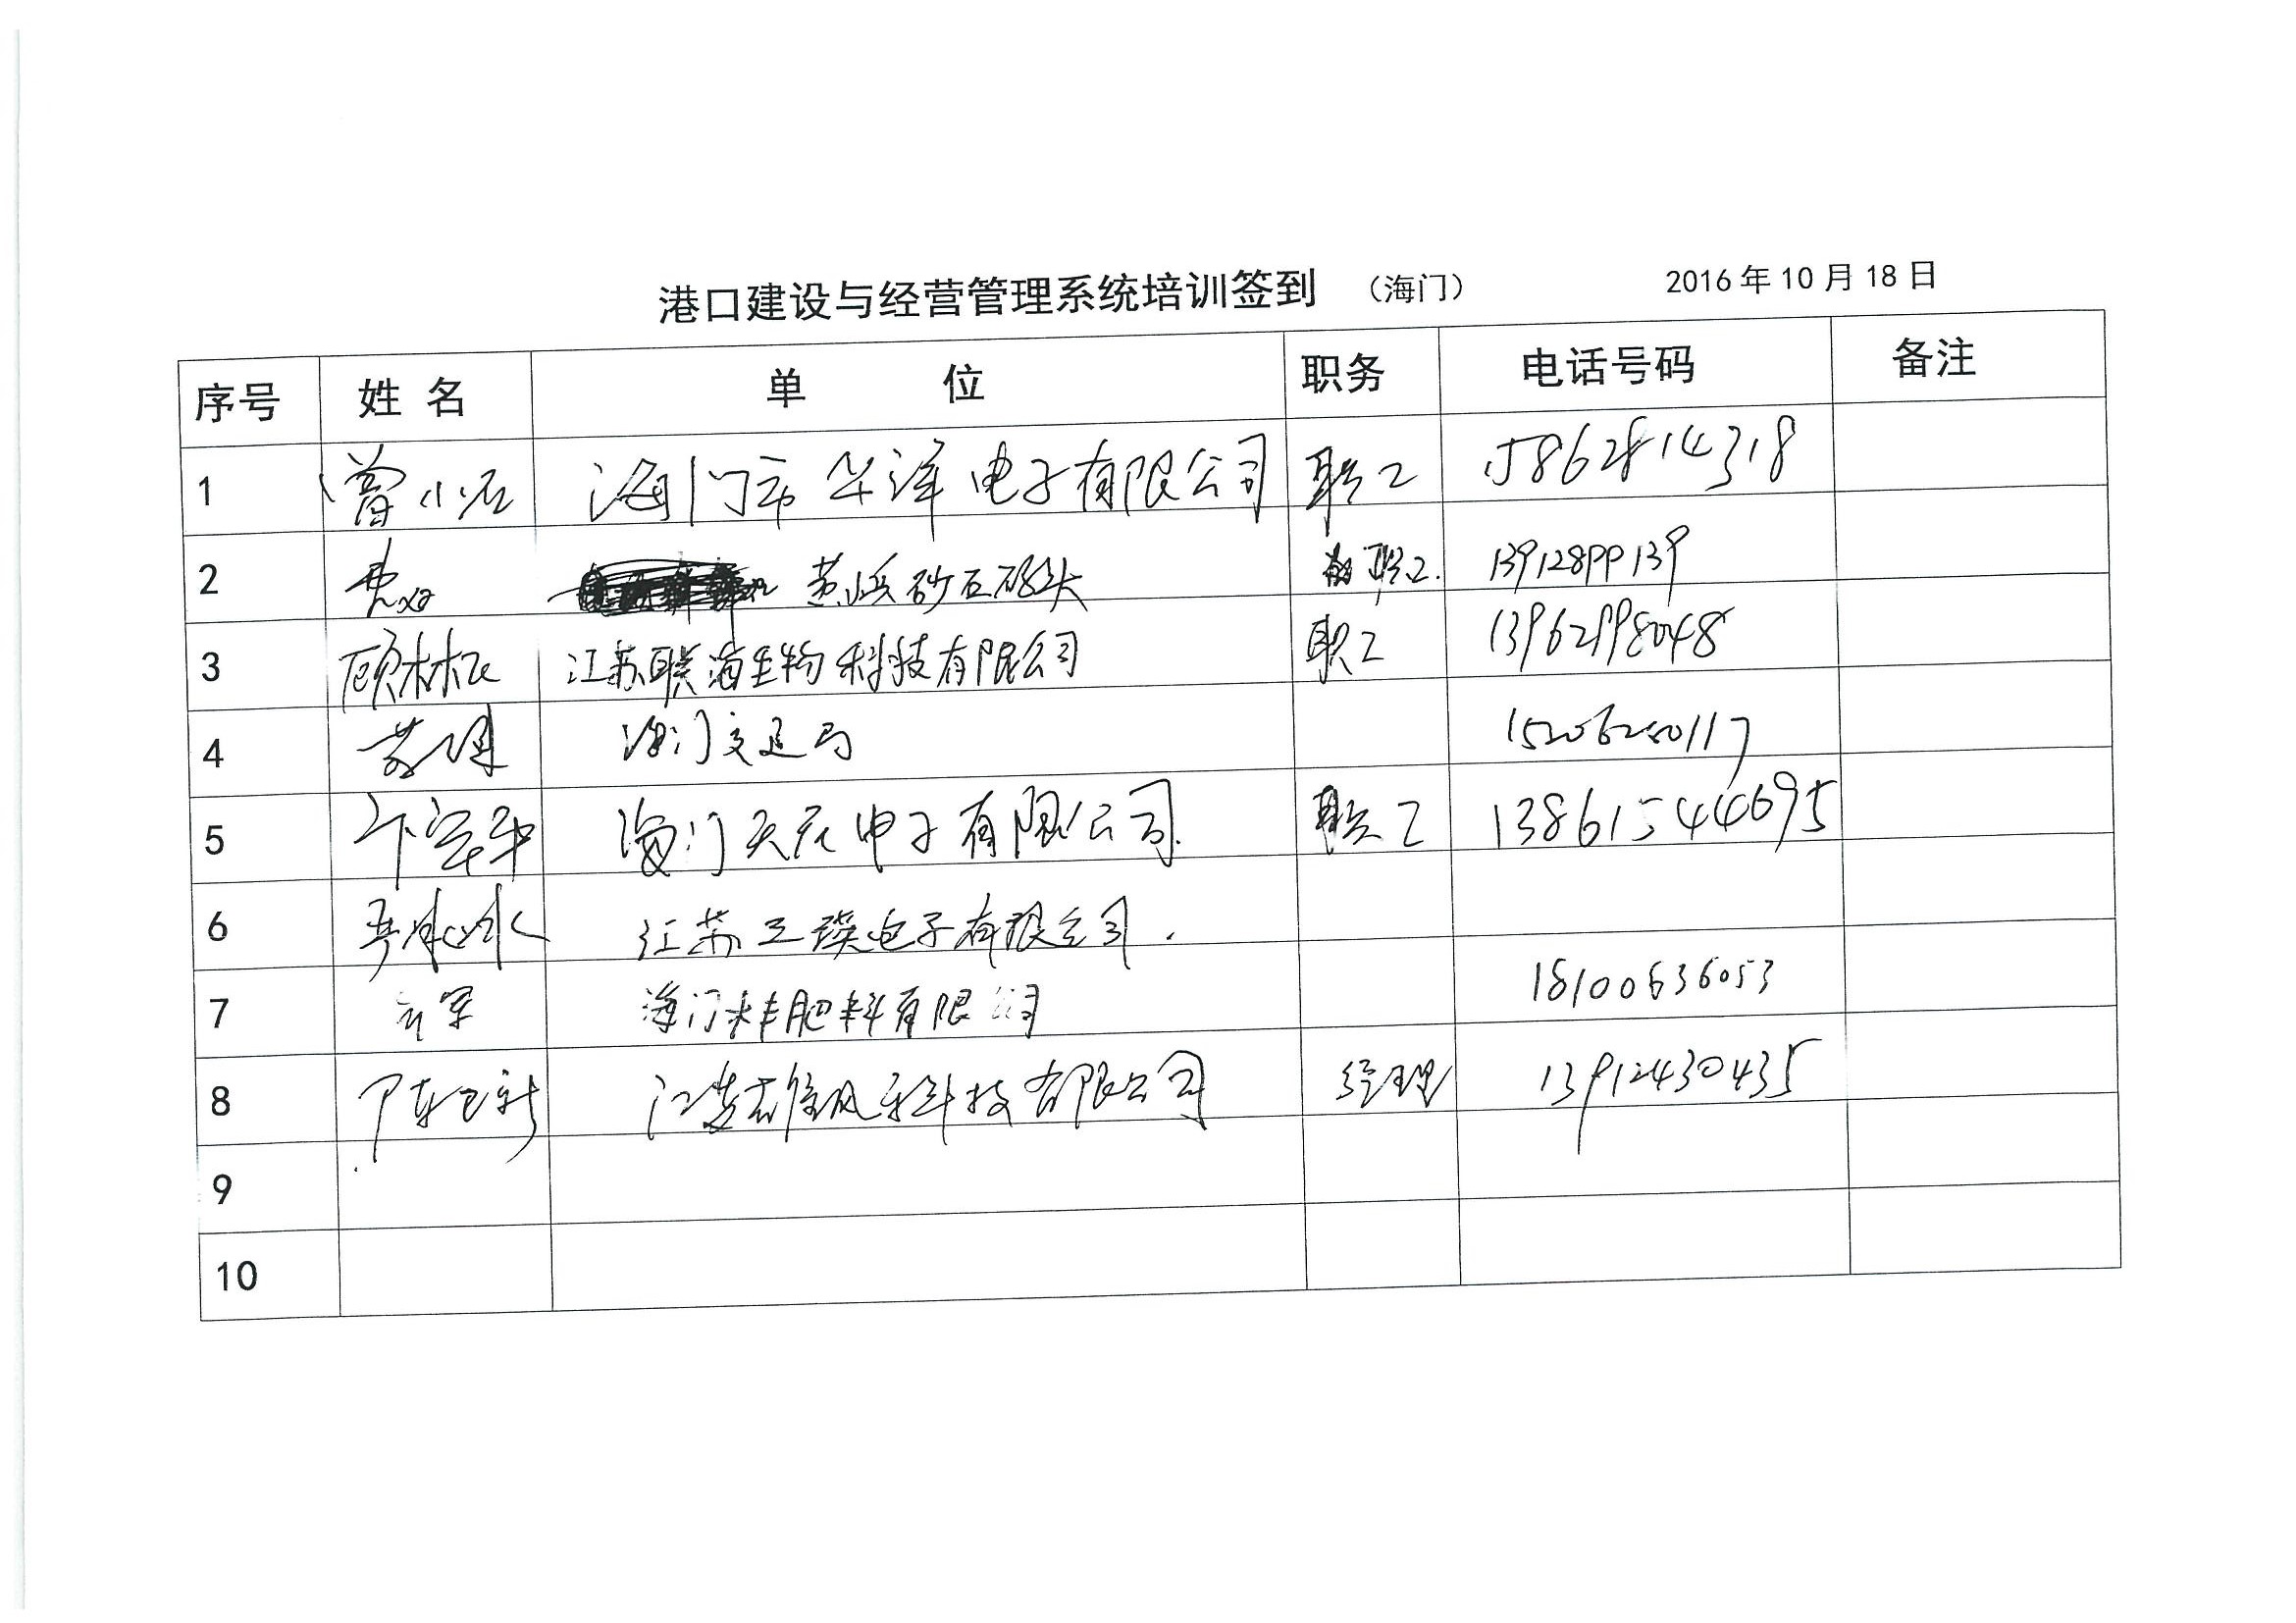 港口建设与经营管理系统培训签到 （海门） 2016年10月18日
序号 姓名 单位 职务 电话号码 备注
1 曾小石 海门市华洋电子有限公司 职工 15862814318
2 黄 砂石码头 职工. 13912899139
3 顾林 江苏联海生物科技有限公司 职工 13962998048
4 海门交通局 15206280117
5 卞 海门天 电子有限公司. 职工 13861544695
6 江苏 电子有限公司.
7 军 海门 丰肥料有限公司 18100636053
8 陈卫新 江苏 雄风科技有限公司 经理 13912430435
9
10